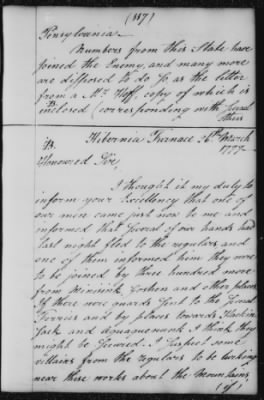 (117)
Pensylvania
Numbers from this State have
joined the Enemy, and many more
are disposed to do so as the letter
from a Mr. Hoff, copy of which is
inclosed (corresponding with several
others
Hibernia Furnace 16th March
1777.
Honoured Sir,
I thought it my duty to
inform your Excellency that one of
our men came just now to me and
informed that several of our hands had
last night fled to the regulars and
one of them informed him they were
to be joined by three hundred more
from Minisink, Goshen and other places.
If there were guards sent to the several
Ferries and by places towards Hackin
Sack and Aquaquenunk I think they
might be secured. I suspect some
villains from the regulars to be lurking
near these works about the Mountains
(if)